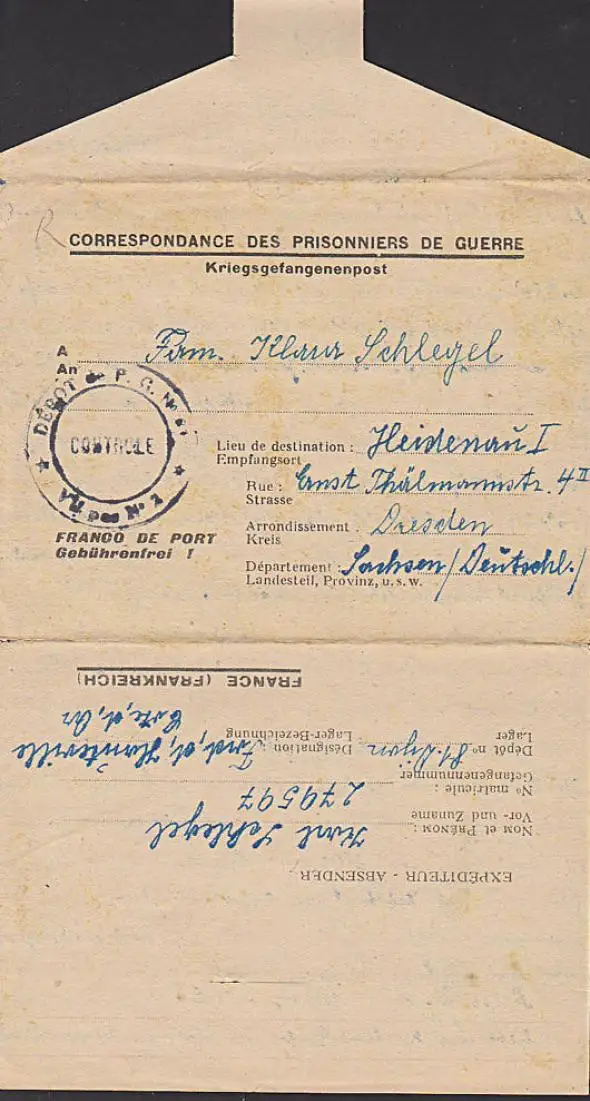 R
CORRESPONDANCE DES PRISONNIERS DE GUERRE
Kriegsgefangenenpost
A
An
Fam. Klaus Schlegel
DÉPÔT de P. G. No 81
CONTROLE
Lieu de destination : Heidenau I
Empfangsort
Rue : Ernst Thälmannstr. 4 II
Strasse
FRANCO DE PORT
Gebührenfrei !
Arrondissement . Dresden
Kreis
Département : Sachsen/Deutschl./
Landesteil, Provinz, u.s.w.
EXPÉDITEUR - ABSENDER :
NOM et PRÉNOM : Karl Schlegel
Vor- und Zuname
No matricule : 279597
Gefangennummer
Dépôt no 81 Dijon Désignation : Ford, d, Hauteville
Lager Lager-Bezeichnung Cote, d, Or
FRANCE (FRANKREICH)